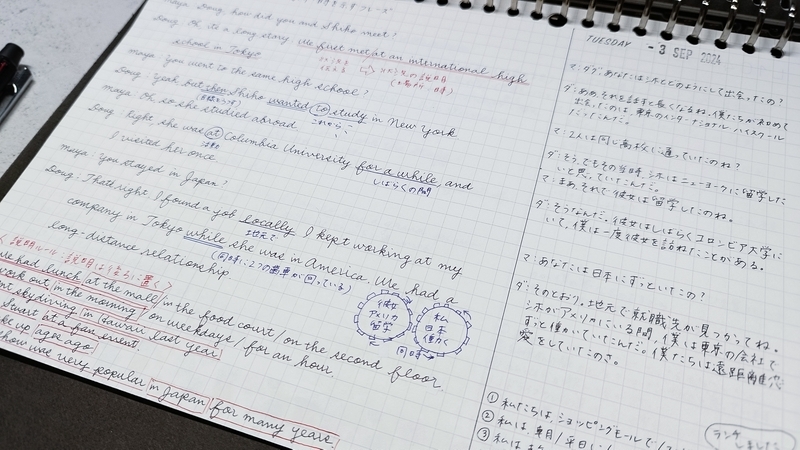 maya: Doug, how did you and Shiho meet?
Doug: Oh, its a long story. We first met at an international high
school in Tokyo
maya: You went to the same high school?
Doug: Yeah, but then Shiho wanted to study in New York
これから、
maya: Oh, so she studied abroad
Doug: Right she was at Columbia University for a while, and
しばらくの間
I visited her once
maya: you stayed in Japan?
Doug: That's right. I found a job locally I kept working at my
地元で
company in Tokyo while she was in America. We had a
(同時に2つの歯車が回っている)
long-distance relationship
説明ルール:説明は後ろに置く
We had lunch at the mall / in the food court / on the second floor.
work out in the morning / on weekdays / for an hour.
skydiving in Hawaii last year
at a fan event.
ages ago
show was very popular in Japan for many years.
彼女
アメリカ
留学
私
日本
働く
同時
TUESDAY - 3 SEP 2024
マ:ダグ、あなたはシホとどのようにして出会ったの?
ダ:ああ、それを話すと長くなるね。僕たちが初めて
出会ったのは、東京のインターナショナルハイスクール
だったんだ。
マ:2人は同じ高校に通っていたのね?
ダ:そう、でもその当時、シホはニューヨークに留学した
いと思っていたんだ。
マ:まあ、それで彼女は留学したのね。
ダ:そうなんだ。彼女はしばらくコロンビア大学に
いて、僕は一度彼女を訪ねたことがある。
マ:あなたは日本にずっといたの?
ダ:そのとおり。地元で就職先が見つかってね。
シホがアメリカにいる間、僕は東京の会社で
ずっと働いていたんだ。僕たちは遠距離恋
愛をしていたのさ。
① 私たちは、ショッピングモールで/
② 私は、朝/平日に/
③ 私は
ランチ
しました